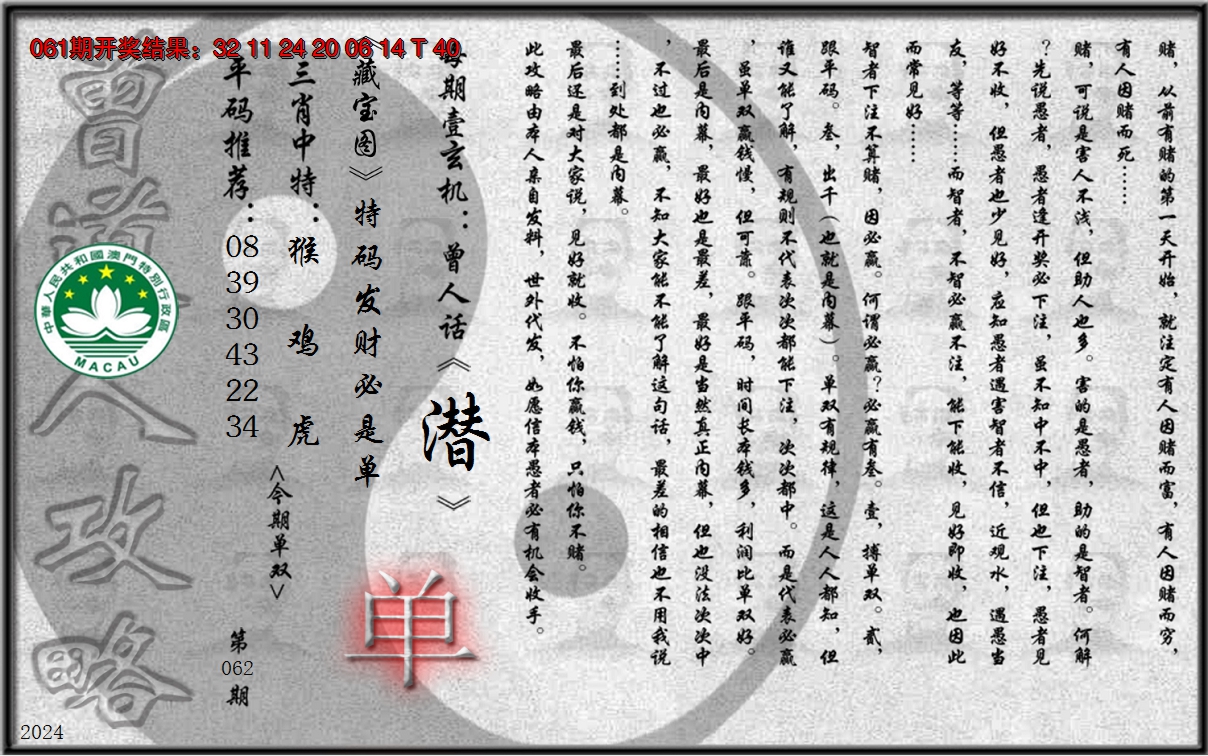 061期开奖结果：32 11 24 20 06 14 T 40
赌，从前有赌的第一天开始，就注定有人因赌而富，有人因赌而穷，
有人因赌而死……
赌，可说是害人不浅，但助人也多。害的是愚者，助的是智者。何解
？先说愚者，愚者逢开奖必下注，虽不知中不中，但也下注，愚者见
好不收，但愚者也少见好，应知愚者遇害智者不信，近观水，遇愚当
友，等等……而智者，不智必赢不注，能下能收，见好即收，也因此
而常见好……
智者下注不算赌，因必赢。何谓必赢？必赢有叁。壹，搏单双。贰，
跟平码。叁，出千（也就是内幕）。单双有规律，这是人人都知，但
谁又能了解，有规则不代表次次都能下注，次次都中。而是代表必赢
，虽单双赢钱慢，但可靠。跟平码，时间长本钱多，利润比单双好。
最后是内幕，最好也是最差，最好是当然真正内幕，但也没法次次中
，不过也必赢，不知大家能不能了解这句话，最差的相信也不用我说
……到处都是内幕。
最后还是对大家说，见好就收。不怕你赢钱，只怕你不赌。
此攻略由本人亲自发料，世外代发，如愿信本愚者必有机会收手。
每期壹玄机：曾人话《潜》
《藏宝图》特码发财必是单
单
三肖中特：猴 鸡 虎
<今期单双>
平码推荐：
08
39
30
43
22
34
第
062
期
曾道人攻略
中華人民共和國澳門特別行政區
MACAU
2024